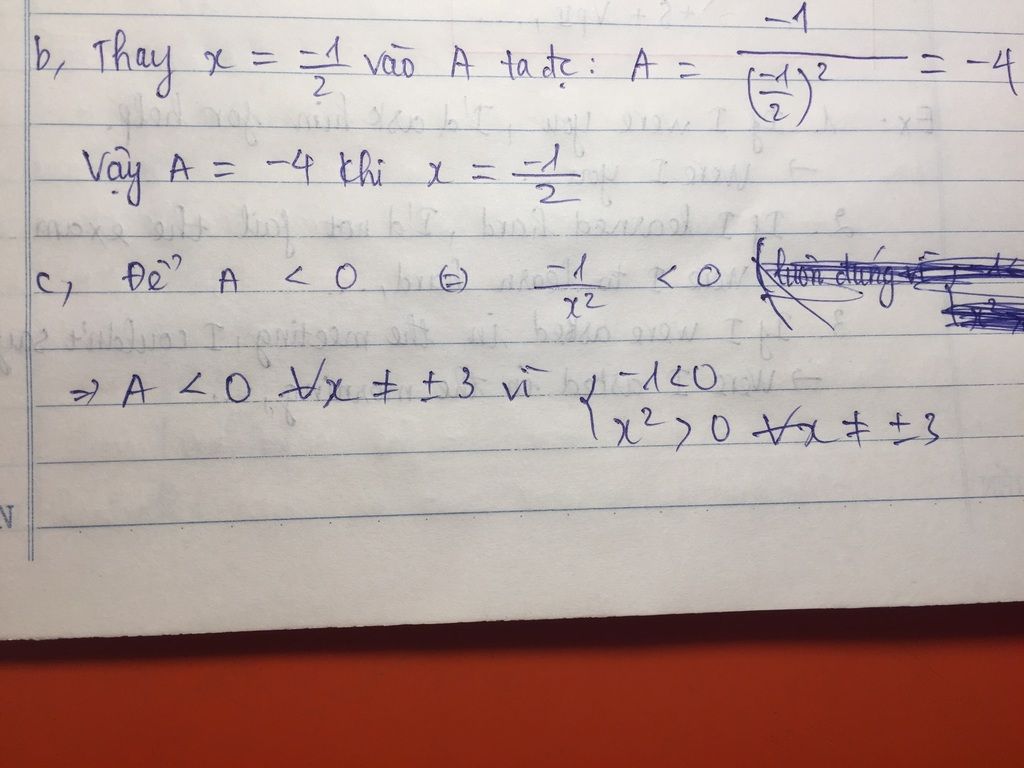 b, Thay x = -1/2 vào A ta đc: A = -1/(-1/2)² = -4
Vậy A = -4 khi x = -1/2
c, Để A < 0 (=) -1/x² < 0 (luôn đúng vì
=> A < 0 ∀x ≠ ±3 vì { -1 < 0
x² > 0 ∀x ≠ ±3